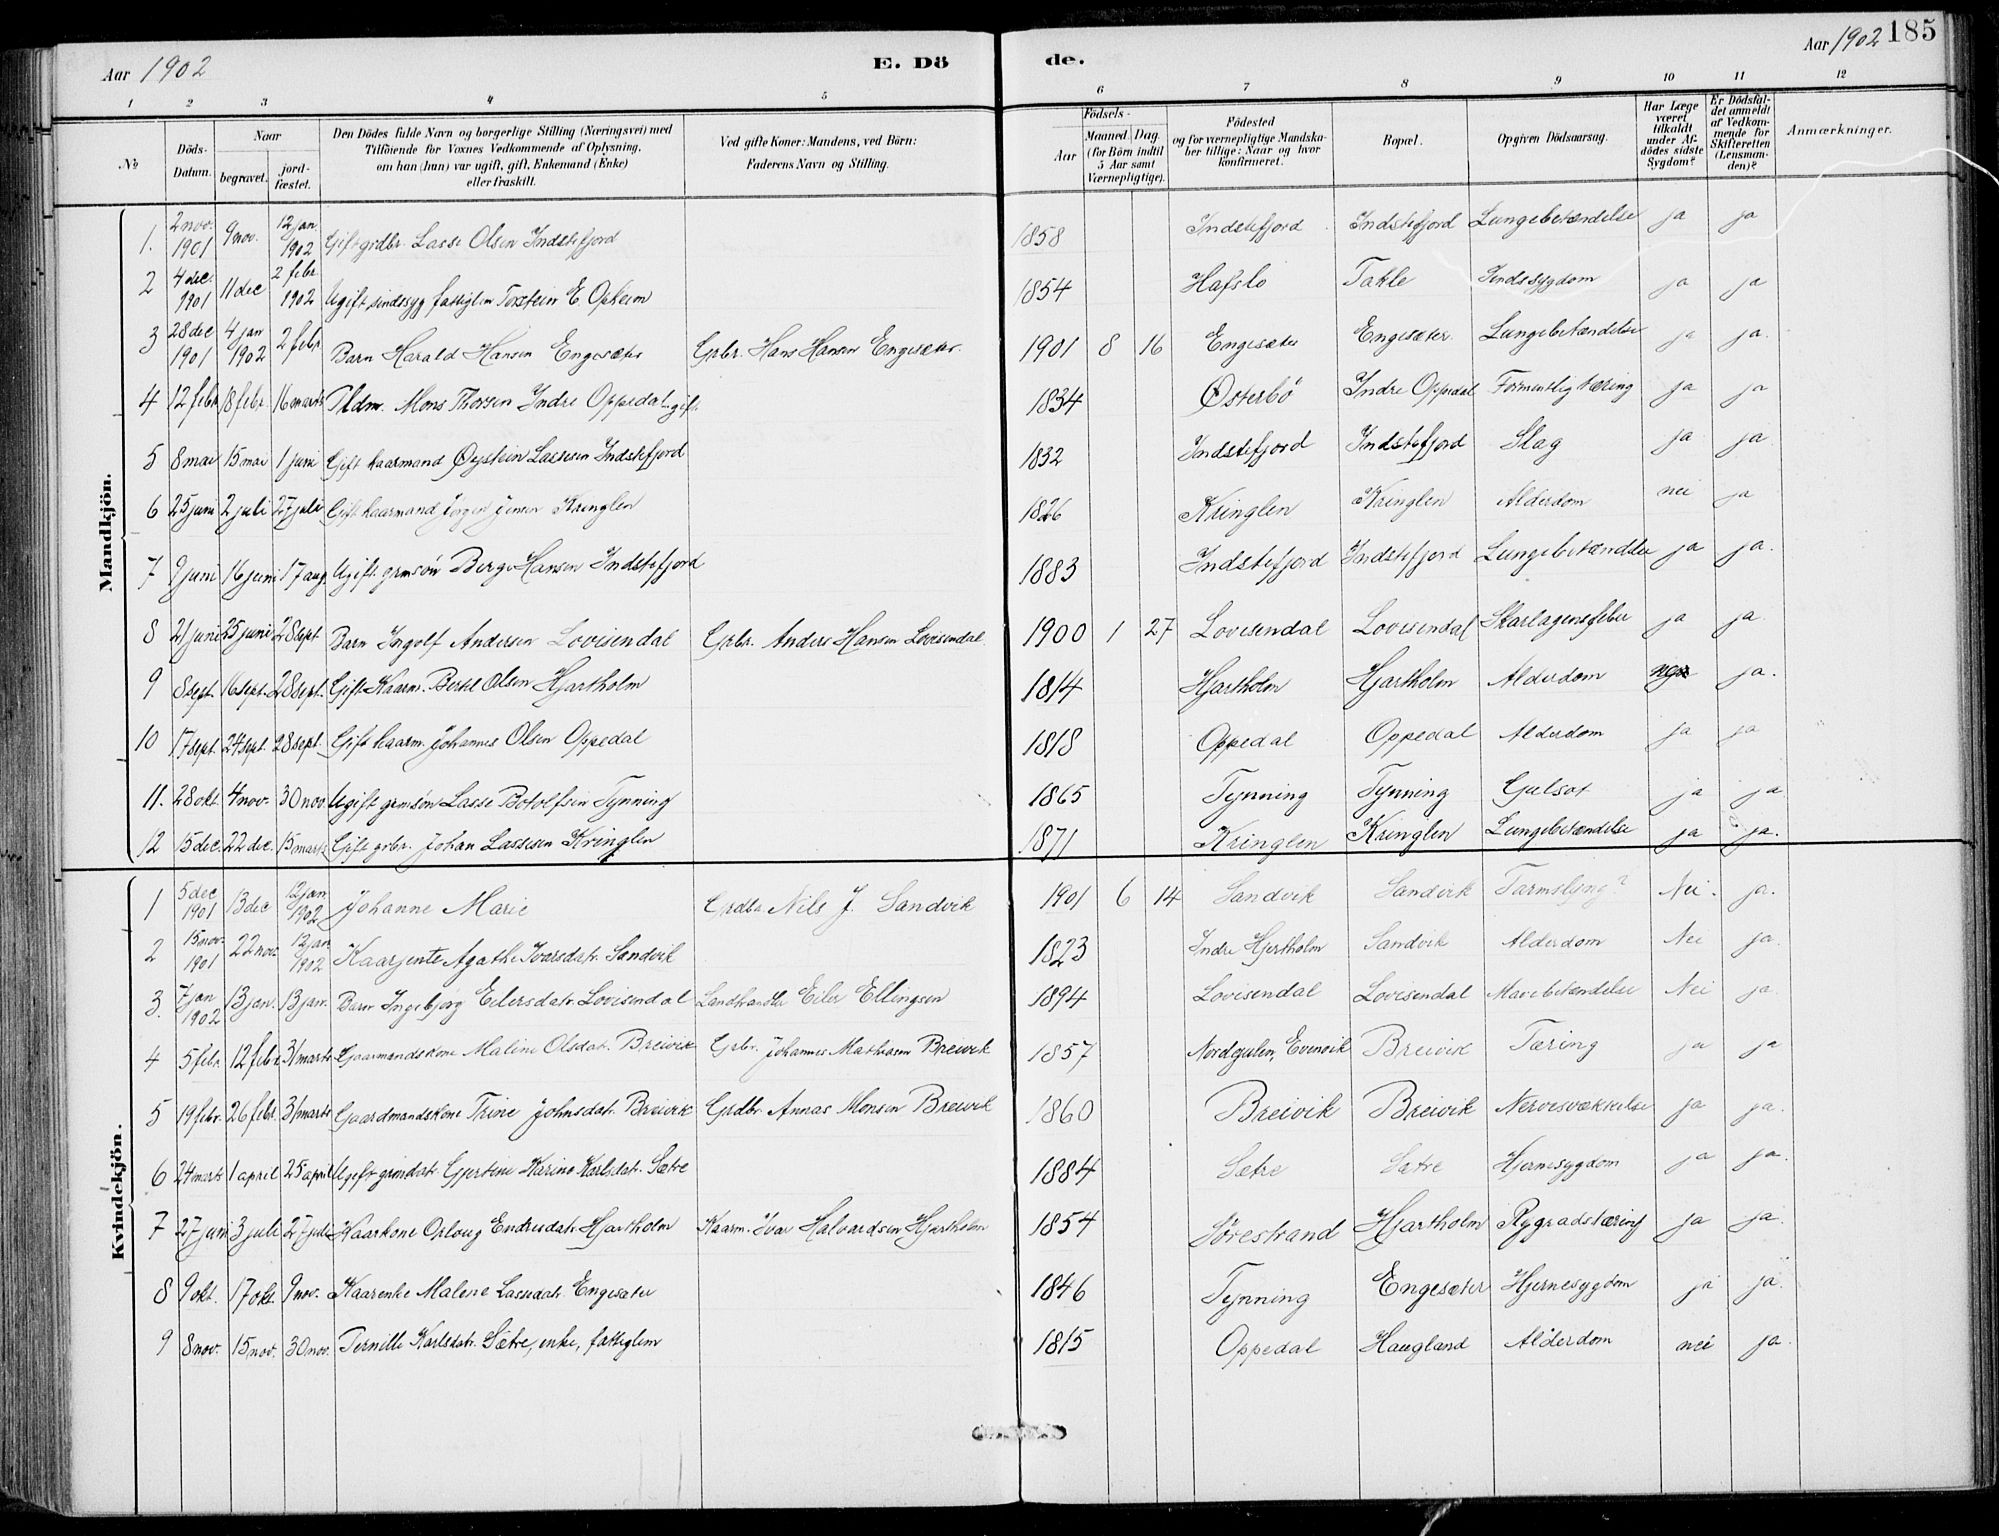 Aar 1902
E. Dö
de.
Aar 1902 185
1 2 3 4 5 6 7 8 9 10 11 12
№
Döds-Datum.
Naar
begravet.
jord-fæstet.
Den Dödes fulde Navn og borgerlige Stilling (Næringsvei) med
Tilföiende for Voxnes Vedkommende af Oplysning,
om han (hun) var ugift, gift, Enkemand (Enke)
eller fraskilt.
Ved gifte Koner: Mandens, ved Börn:
Faderens Navn og Stilling.
Födsels-
Aar
Maaned. Dag.
(for Börn indtil
5 Aar samt
Værnepligtige).
Födested
og for værnepligtige Mandska-
ber tillige: Naar og hvor
konfirmeret.
Bopæl.
Opgiven Dödsaarsag.
Har Læge
været
tilkaldt
under Af-
dödes sidste
Sygdom?
Er Dödsfal-
det anmeldt
af Vedkom-
mende for
Skifteretten
(Lensman-
den)?
Anmærkninger.
Mandkjön.
1. 2 nov. 1901 9 nov. 12 jan 1902 Gift grdbr. Lasse Olsen Indstefjord 1858 Indstefjord Indstefjord Lungebetændelse ja ja
2 4 dec. 1901 11 dec 2 febr 1902 Ugift sindssyg fattiglem Torstein E. Opheim 1854 Hafslo Takle Sindssygdom ja ja
3 28 dec 1901 4 jan 1902 2 febr Barn Harald Hansen Engesæter Grbr. Hans Hansen Engesæter. 1901 8 16 Engesæter Engesæter. Lungebetændelse ja ja.
4 12 febr 18 febr 16 marts Mons Thorsen Indre Oppedal gift 1834 Østerbö Indre Oppedal Formentlig tæring ja ja
5 8 mai 15 mai 1 juni Gift kaarmand Øystein Lassesen Indstefjord 1832 Indstefjord Indstefjord Slag ja ja
6 25 juni 2 juli 27 juli Gift kaarmand Jörgen Jensen Kringlen 1826 Kringlen Kringlen Alderdom nei ja
7 9 juni 16 juni 17 aug. Ugift. grmsön Berge Hansen Indstefjord 1883 Indstefjord Indstefjord Lungebetændelse ja ja.
8 21 juni 25 juni 28 sept Barn Ingolf Andersen Lovisendal Grbr. Anders Hansen Lovisendal. 1900 1 27 Lovisendal Lovisendal Skarlagensfeber ja ja.
9 8 sept. 16 sept. 28 sept. Gift Kaarm. Bertel Olsen Hjartholm 1814 Hjartholm Hjartholm Alderdom ja.
10 17 sept. 24 sept. 28 sept. Gift kaarm. Johannes Olsen Oppedal 1818 Oppedal Oppedal Alderdom ja ja
11. 28 okt. 4 nov. 30 nov. Ugift grmsön Lasse Botolfsen Tynning 1865 Tynning Tynning Gulsot ja ja
12 15 dec. 22 dec. 15 marts Gift grbr. Johan Lassesen Kringlen 1871 Kringlen Kringlen Lungebetændelse ja ja.
Kvindekjön.
1 5 dec 1901 13 dec 12 jan 1902 Johanne Marie Grdbr. Nils J. Sandvik 1901 6 14 Sandvik Sandvik Tarmslyng? Nei. ja.
2 15 nov. 1901 22 nov. 12 jan 1902 Kaarjente Agathe Ivarsdatr. Sandvik 1823 Indre Hjertholm Sandvik Alderdom Nei ja.
3. 7 jan 1902 13 jan. 13 jan. Barn Ingebjörg Eilersdatr. Lovisendal Landhandler Eiler Ellingsen 1894 Lovisendal Lovisendal Mavebetændelse Nei ja.
4 5 febr. 12 febr. 31 marts Gaarmandskone Maline Olsdatr. Breivik Grbr. Johannes Mathisen Breivik 1857 Nordgulen, Evenvik Breivik Tæring ja ja
5 19 febr. 26 febr. 31 marts Gaardmandskone Trine Johnsdatr. Breivik Grdbr. Annas Monsen Breivik 1860 Breivik Breivik Nervesvækkelse ja ja.
6 24 marts 1 april 25 april Ugift grmdatr. Gjertine Karine Karlsdatr. Sætre 1884 Sætre Sætre Hjernesygdom ja ja.
7 27 juni 3 juli 27 juli Kaarkone Oploug Endresdatr. Hjartholm Kaarm. Ivar Halvardsen Hjertholm 1854 Sörestrand Hjartholm Rygradstæring ja ja.
8 9 okt. 17 okt. 9 nov. Kaarenke Malene Lassedatr. Engesæter 1846 Tynning Engesæter Hjernesygdom ja ja.
9 8 nov. 15 nov. 30 nov. Pernille Karlsdatr. Sætre, enke, fattiglem 1815 Oppedal Haugland Alderdom nei ja.